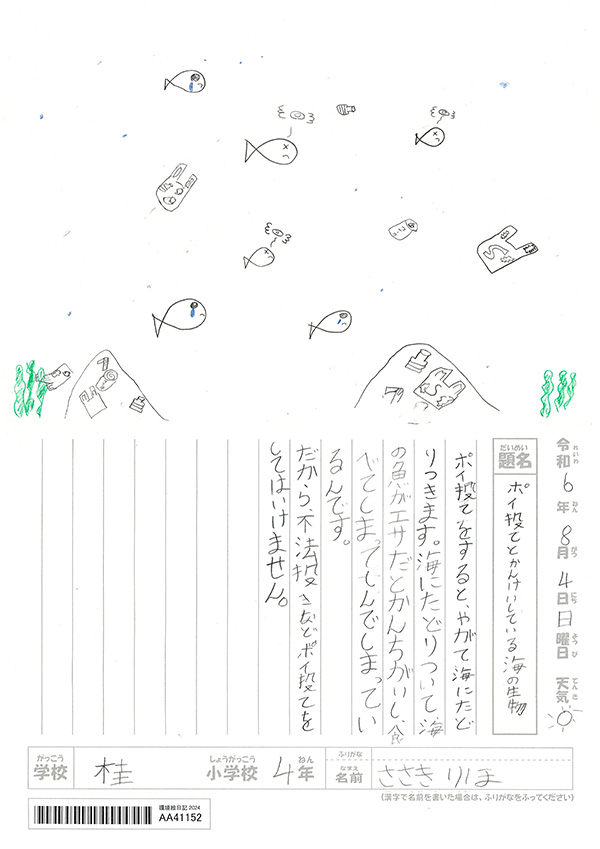 令和6年8月4日日曜日 天気
れいわ ねん がつ にち ようび てんき
だいめい
題名 ポイ投てとかんけいしている海の生物
ポイ投てをすると、やがて海にたど
りつきます。海にたどりついて海
の魚がエサだとかんちがいし、食
べてしまってしんでしまってい
るんです。
だから、不法投きなどポイ投てを
してはいけません。
がっこう しょうがっこう ねん ふりがな
学校 桂 小学校 4年 名前 ささき りほ
なまえ
(漢字で名前を書いた場合は、ふりがなをふってください)
環境絵日記 2024
AA41152